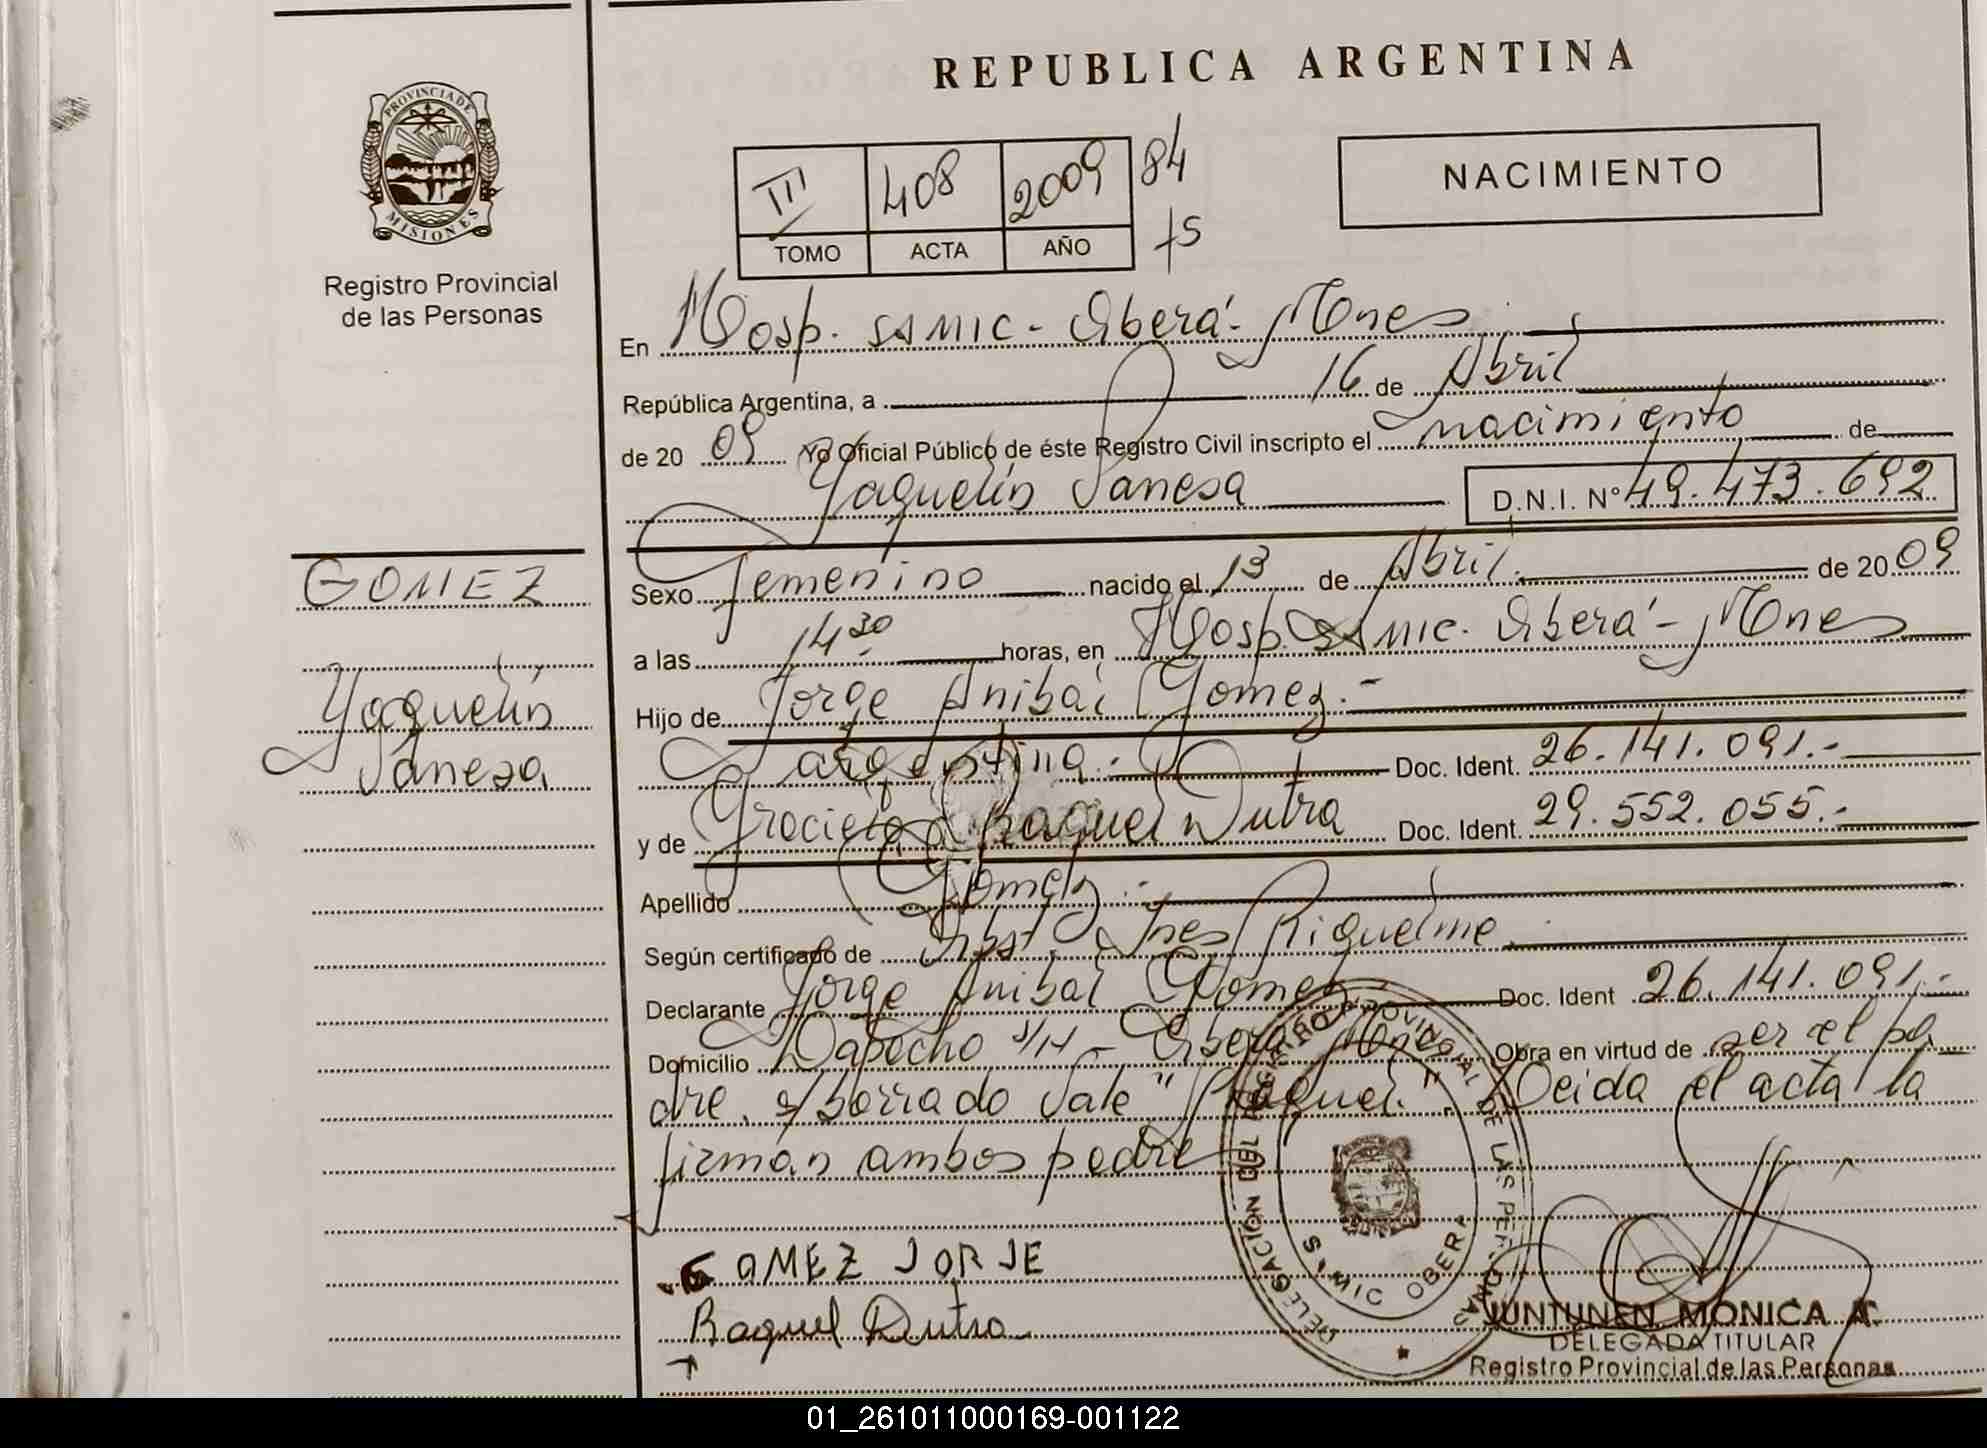 REPUBLICA ARGENTINA
PROVINCIA DE
MISIONES
Registro Provincial
de las Personas
III 408 2009 84
TOMO ACTA AÑO
NACIMIENTO
En Hosp. SAMIC - Oberá - Mnes
República Argentina, a 16 de Abril
de 20 09 Yo Oficial Público de éste Registro Civil inscripto el nacimiento de
Yaquelin Vanesa D.N.I. Nº 49.473.692
GOMEZ
Yaquelin
Vanesa
Sexo femenino nacido el 13 de Abril. de 20 09
a las 14 30 horas, en Hosp. SAMIC. Oberá - Mnes
Hijo de Jorge Anibal Gomez.-
argentina.- Doc. Ident. 26.141.091.-
y de Graciela Raquel Dutra Doc. Ident. 29.552.055.-
Apellido Gomez.-
Según certificado de Obst. Ines Riquelme
Declarante Jorge Anibal Gomez Doc. Ident 26.141.091.-
Domicilio s/N - Oberá Mnes Obra en virtud de ser el pa
dre. s/borrado vale "Raquel" Leida el acta la
firman ambos padre
GOMEZ JORJE
Raquel Dutra
DELEGACIÓN DEL REGISTRO PROVINCIAL DE LAS PERSONAS
SAMIC OBERA
JUNTUNEN MONICA A.
DELEGADA TITULAR
Registro Provincial de las Personas
01_261011000169-001122